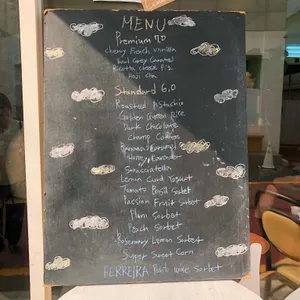 MENU
Premium 7.0
Cherry Peach Vanilla
Caramel
Ricotta cheese Fig
Hoji cha
Standard 6.0
Roasted Pistachio
Golden Queen Rice
Dark Chocolate
Champ Cookies
Banana Caramel
Honey Lavender
Stracciatella
Lemon Curd Yogurt
Tomato Basil Sorbet
Passion Fruit Sorbet
Plum Sorbet
Peach Sorbet
Rosemary Lemon Sorbet
Super Sweet Corn
FERREIRA Port wine Sorbet